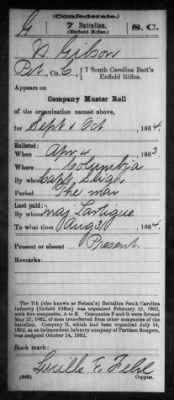 (Confederate.)
G 7 Battalion. S. C.
(Enfield Rifles.)
J Gibson
Pvt, Co. C, 7 South Carolina Batt'n
Enfield Rifles.
Appears on
Company Muster Roll
of the organization named above,
for Sept & Oct, 1864.
Enlisted:
When Apr 4, 186
Where Columbia
By whom Capt Sligh
Period The war
Last paid:
By whom Maj Lartigue
To what time Aug 31, 1864.
Present or absent Present
Remarks:
The 7th (also known as Nelson's) Battalion South Carolina
Infantry (Enfield Rifles) was organized February 22, 1862,
with five companies, A to E. Companies F and G were formed
May 27, 1862, of men transferred from other companies of the
battalion. Company H, which had been organized July 14,
1862, as an independent company of Partisan Rangers,
was assigned October 14, 1862.
Book mark:
Lucille E.
(642) Copyist.